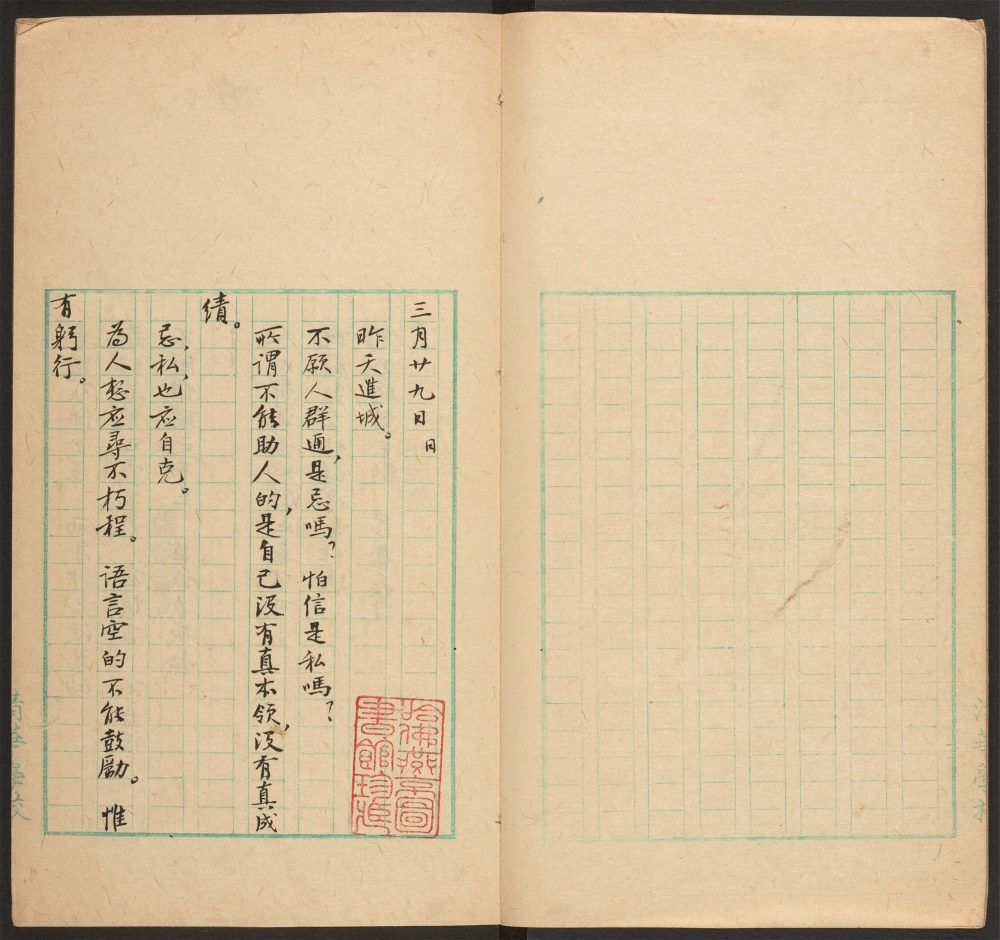 三月廿九日 日
昨天進城。
不願人群通，是忌嗎？怕信是私嗎？
所謂不能助人的，是自己没有真本领，没有真成
績。
忌，私，也应自克。
為人想应尋不朽程。语言空的不能鼓勵。惟
有躬行。
哈佛燕京圖
書館珍藏